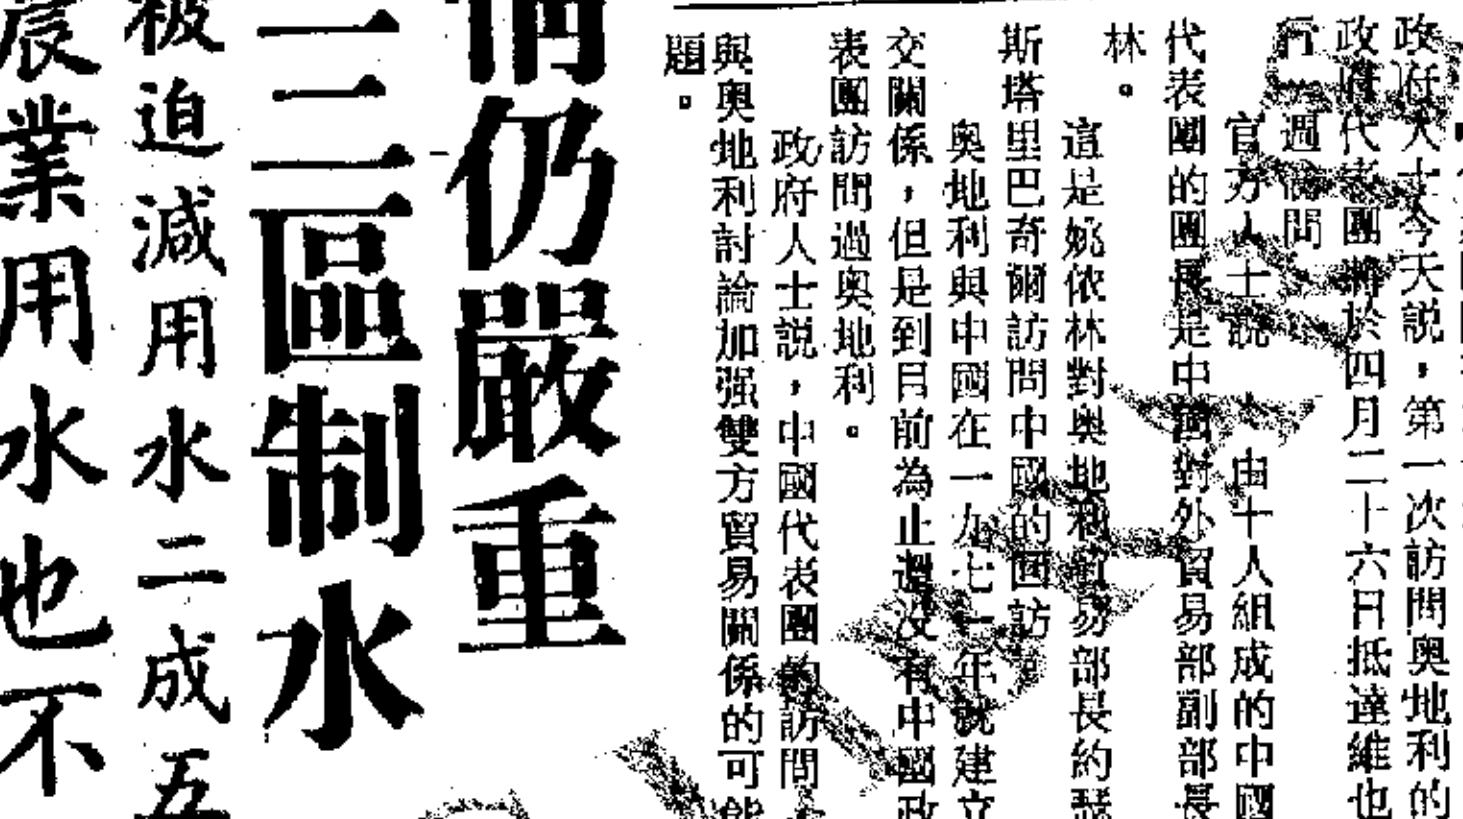 政府人士今天説，第一次訪問奥地利的
政府代表團將於四月二十六日抵達維也
行一週訪問
官方人士説，由十人組成的中國
代表團的團長是中國對外貿易部副部長
林。
這是姚依林對奥地利貿易部長約瑟
斯塔里巴奇爾訪問中國的回訪。
奥地利與中國在一九七一年就建立
交關係，但是到目前為止還没有中國政
表團訪問過奥地利。
政府人士説，中國代表團的訪問
與奥地利討論加强雙方貿易關係的可能
題。
仍嚴重
三區制水
被迫減用水二成五
農業用水也不